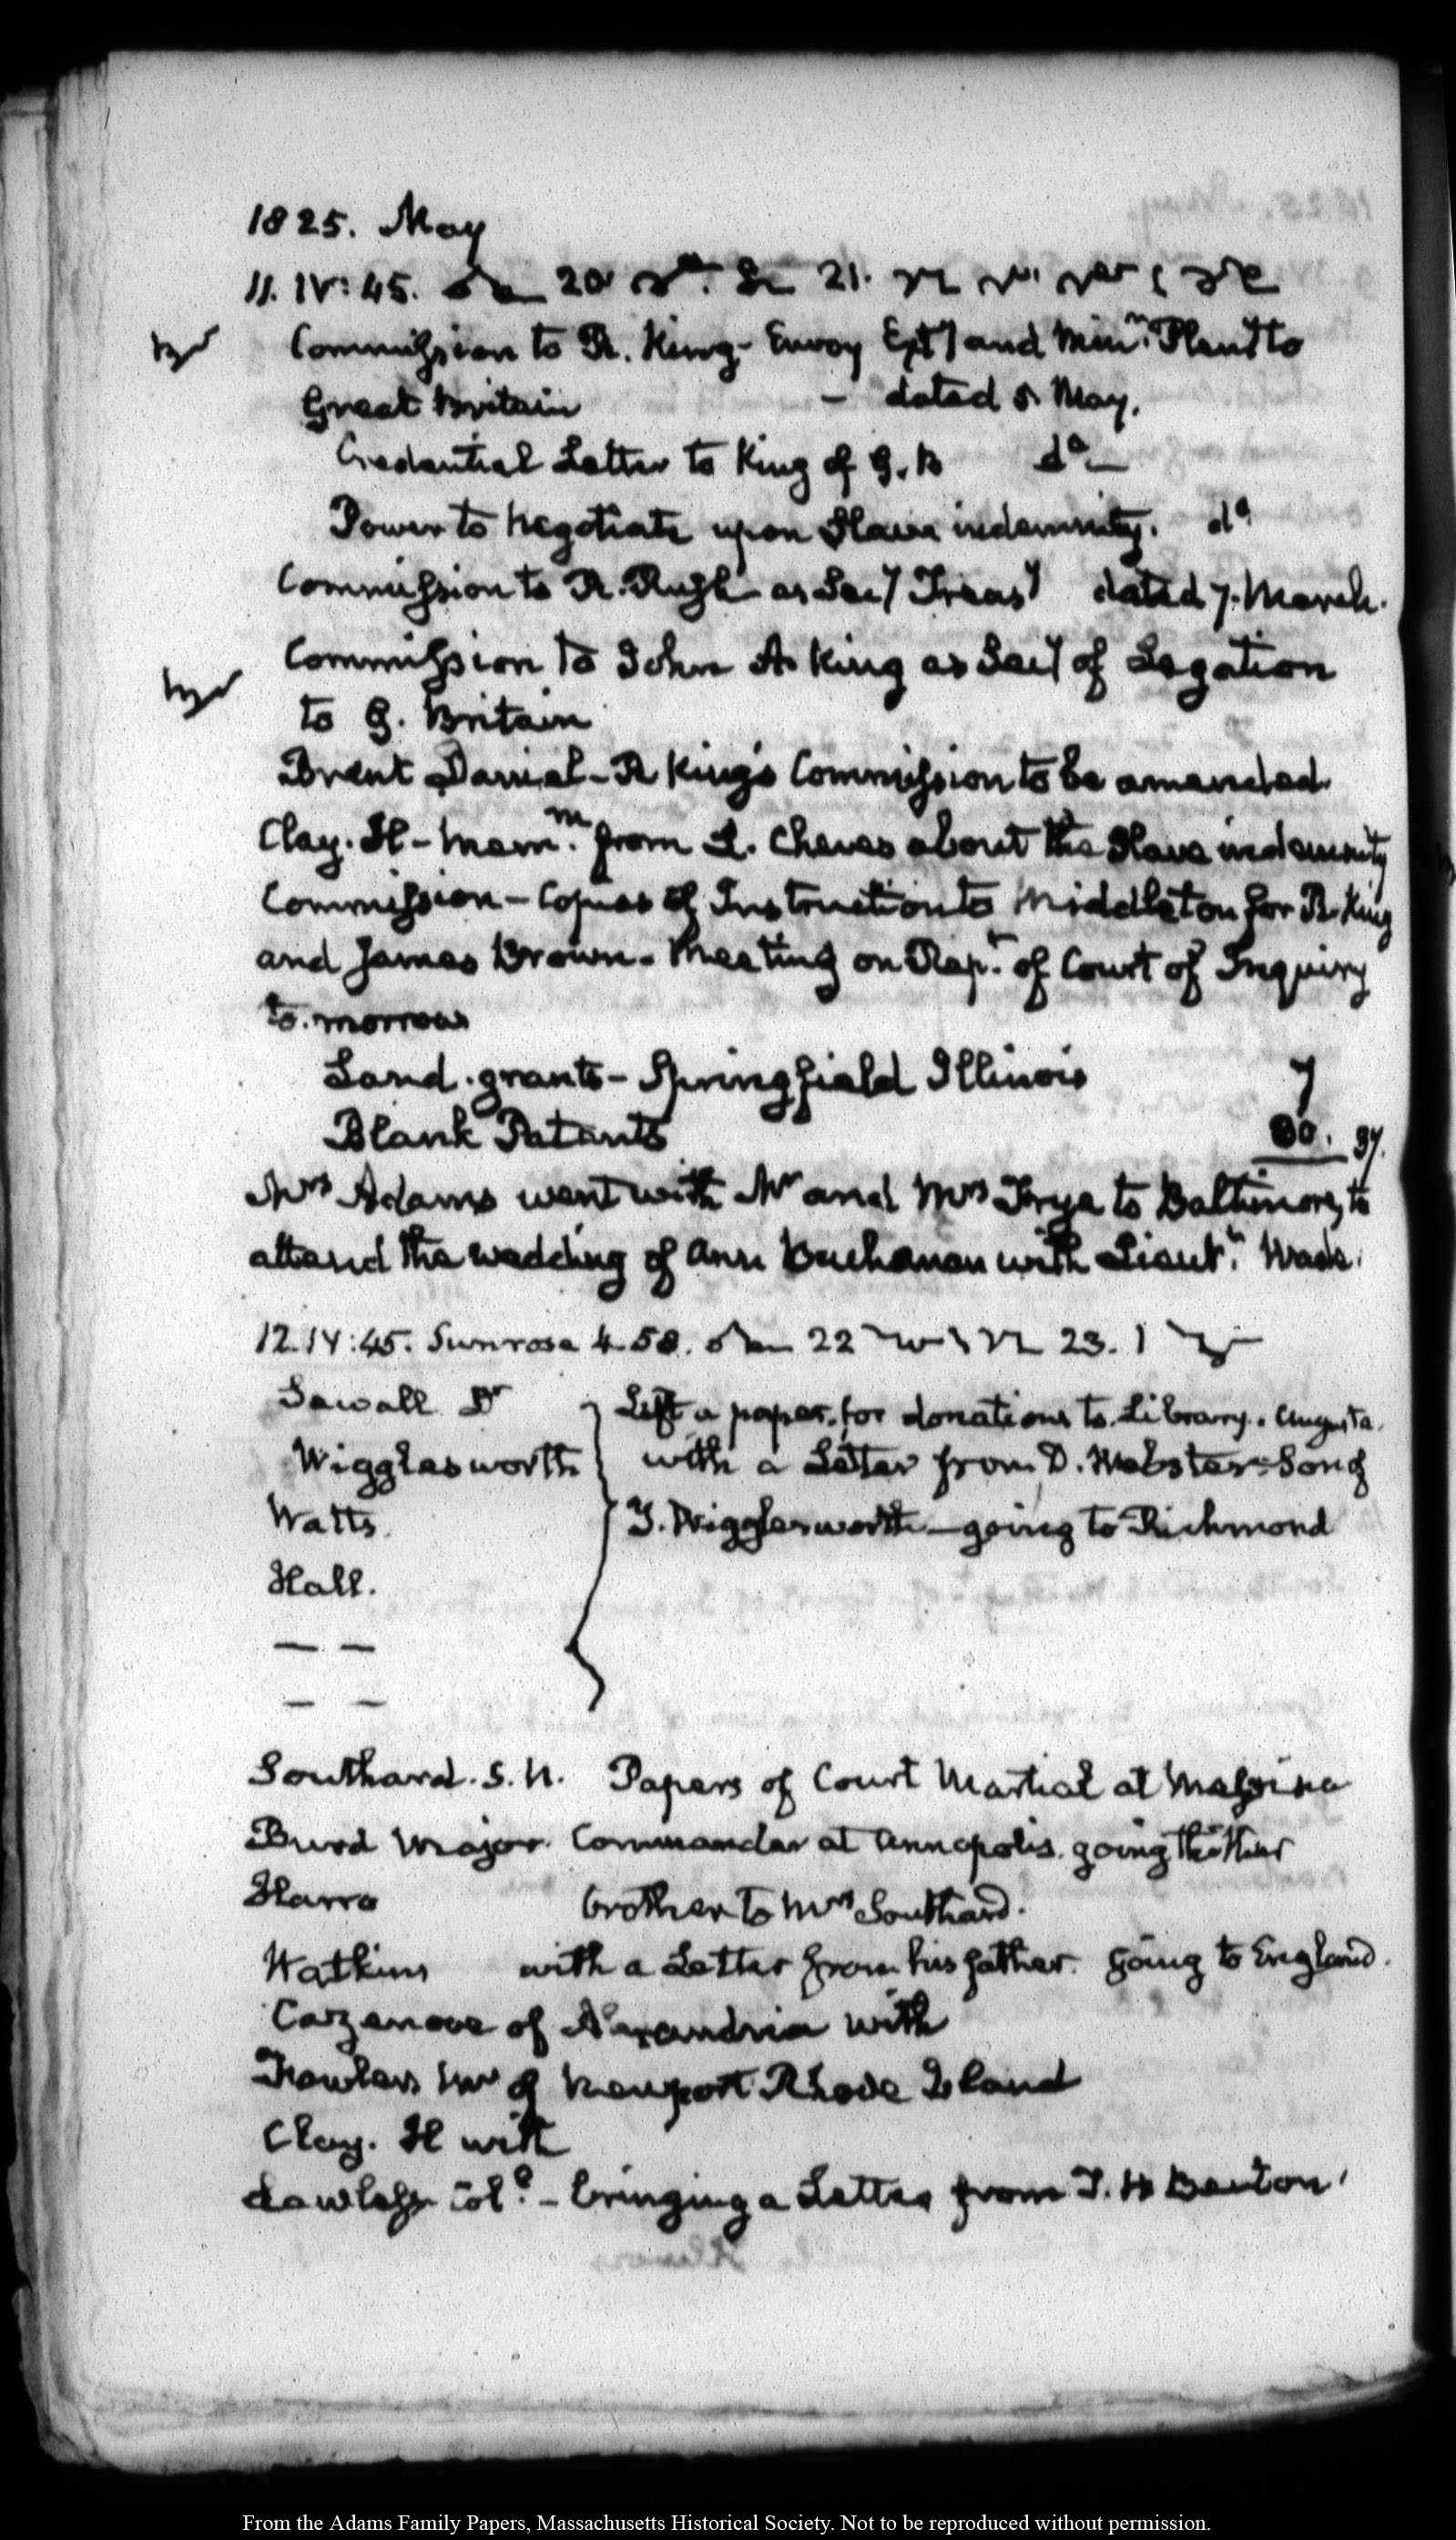 1825. May
11. IV: 45. 20 21.
Commission to R. King- Envoy Exty and Minr. Plenty to
Great Britain - dated 5 May.
Credential Letter to King of G. B do—
Power to negotiate upon Slave indemnity. do
Commission to R. Rush as Secy Treasy dated 7. March.
Commission to John A. King as Secy of Legation
to G. Britain
Brent Daniel- R King's Commission to be amended
Clay. H- Memm. from L. Cheves about the Slave indemnity
Commission- Copies of Instruction to Middleton for R. King
and James Brown- Meeting on Rept. of Court of Inquiry
to-morrow
Land-grants- Springfield Illinois 7
Blank Patents 30. 37.
Mrs Adams went with Mr and Mrs Frye to Baltimore, to
attend the wedding of Ann Buchanan with Lieutt. Wade.
12. IV:45. Sunrose 4-58. 22 23.
Sewall Dr Left a paper, for donations to Library. Augusta.
Wigglesworth with a Letter from D. Webster- Son of
Watts. T. Wigglesworth- going to Richmond
Hall.
— —
— —
Southard. S. L. Papers of Court Martial at Messina
Burd Major. Commander at Annapolis. going thither
Harro brother to Mrs Southard.
Watkins with a Letter from his father. going to England.
Cazenove of Alexandria with
Fowler Mr of Newport Rhode Island
Clay. H with
Lawless Colo. - bringing a Letter from T. H Benton
From the Adams Family Papers, Massachusetts Historical Society. Not to be reproduced without permission.